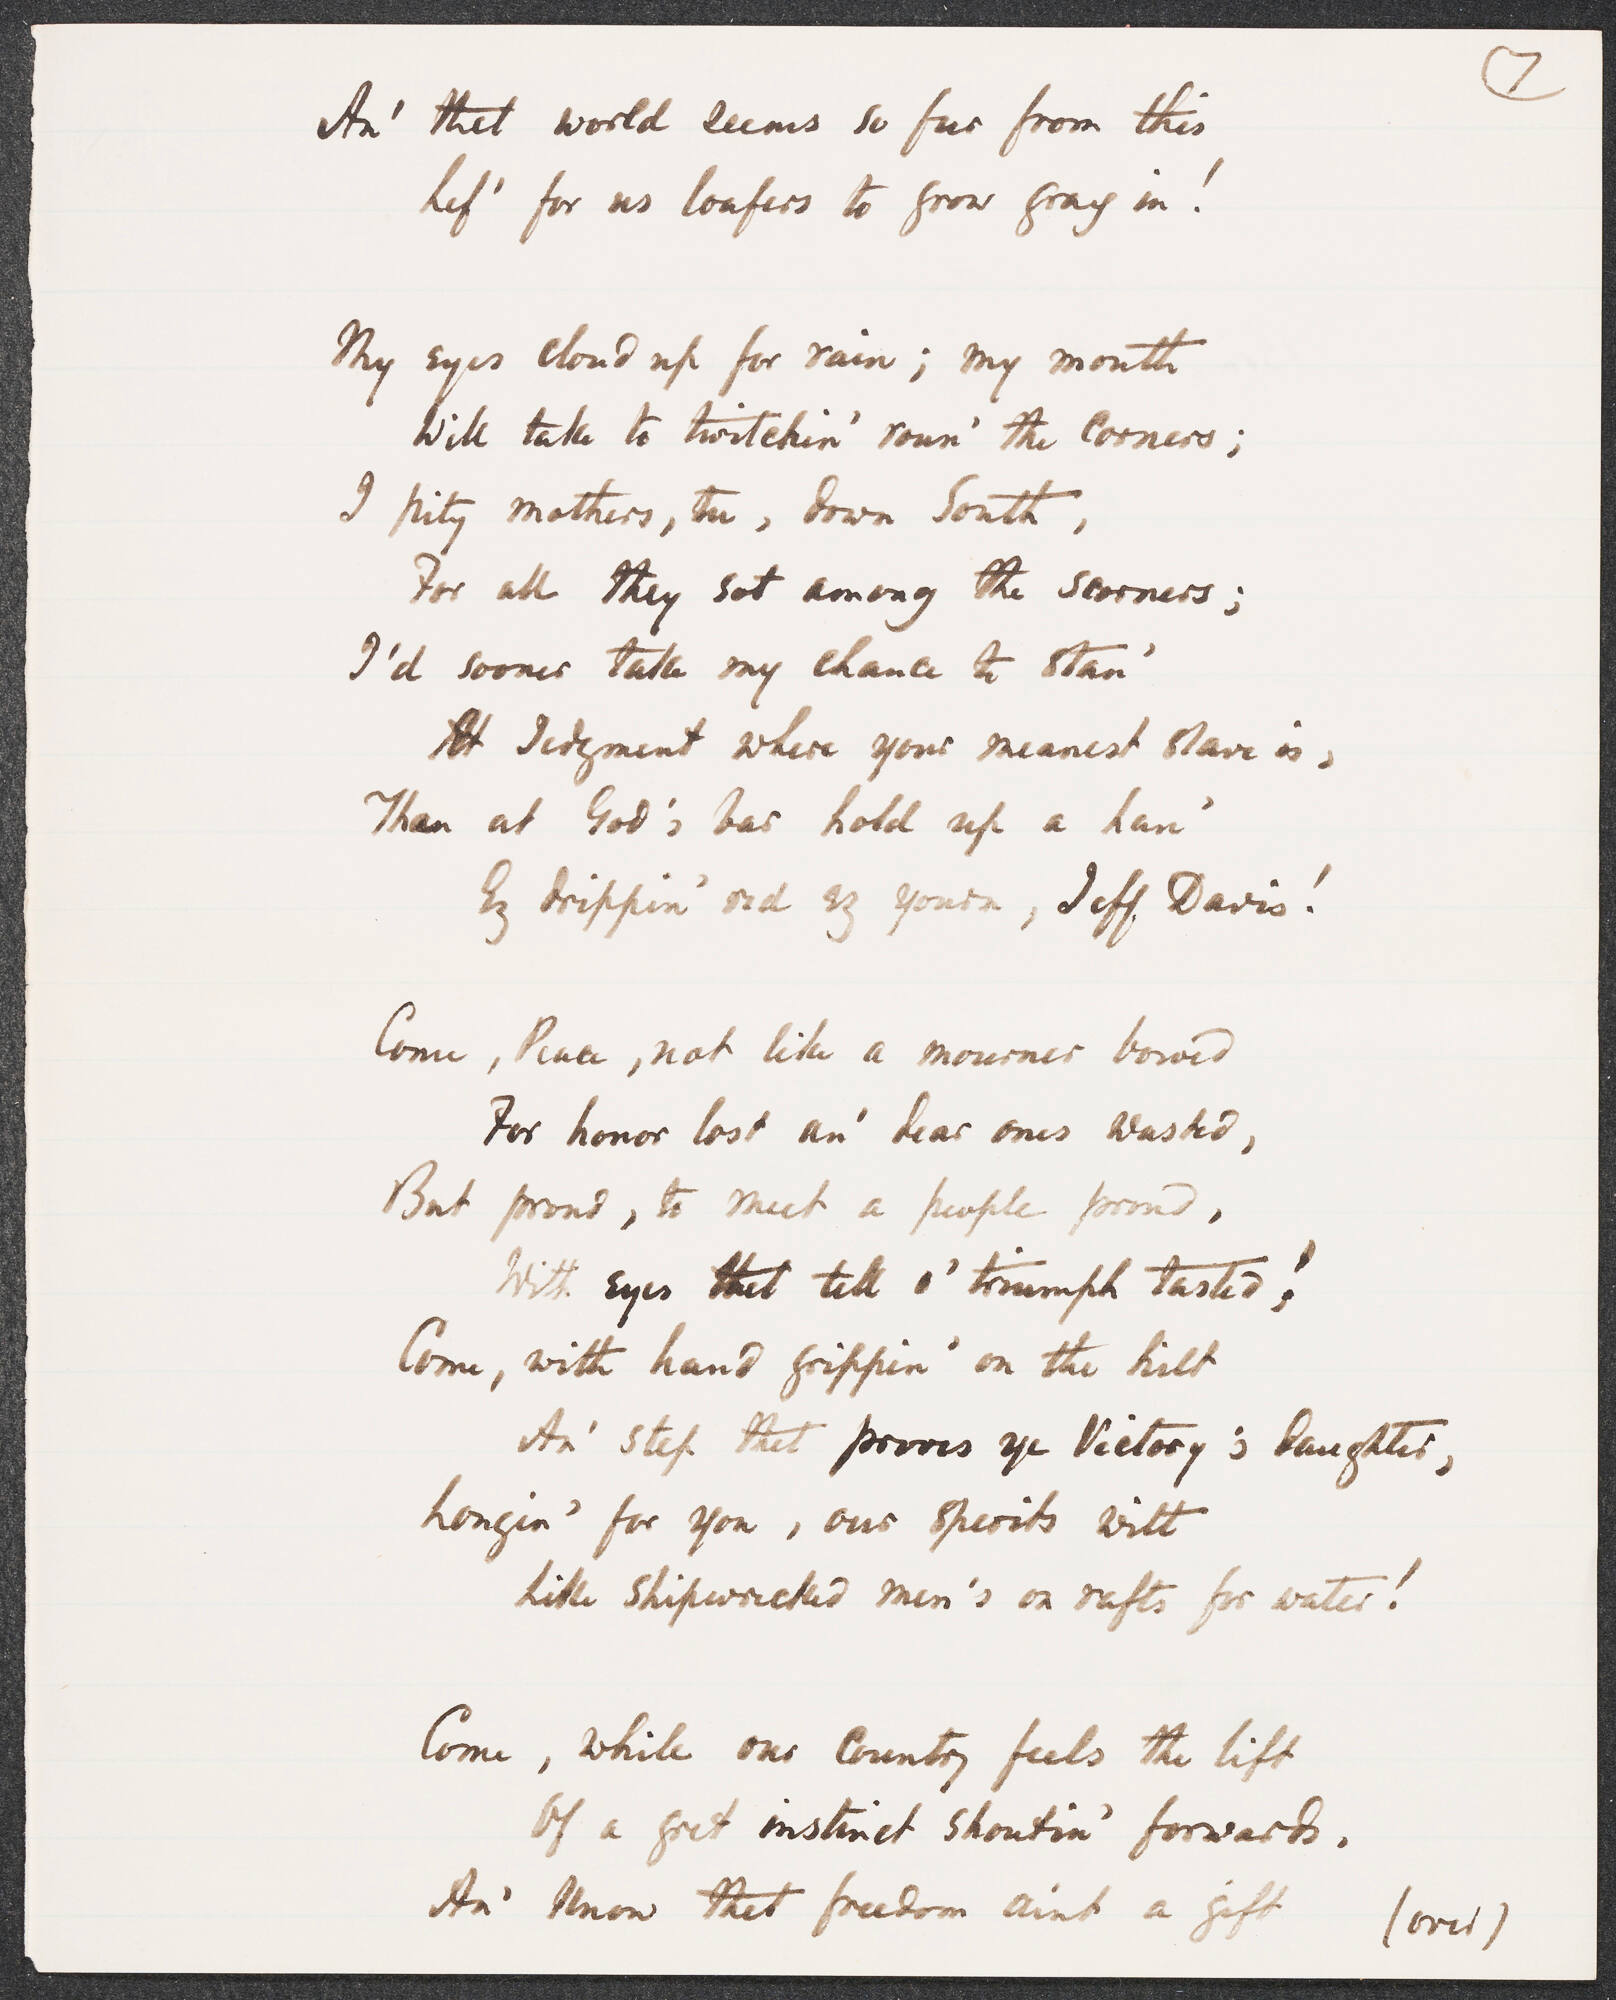 7
An' thet world seems so fur from this
Lef' for us loafers to grow gray in!
My eyes cloud up for rain; my mouth
Will take to twitchin' roun' the corners;
I pity mothers, tu, down South,
For all they sot among the scorners;
I'd sooner take my chance to stan'
At Jedgment where your meanest slave is,
Than at God's bar hold up a han'
Ez drippin' red ez yourn, Jeff Davis!
Come, Peace, not like a mourner bowed
For honor lost an' dear ones wasted,
But proud, to meet a people proud,
With eyes thet tell o' triumph tasted!
Come, with hand grippin' on the hilt
An' step thet proves ye Victory's daughter,
Longin' for you, our sperits wilt
Like shipwrecked men's on rafts for water!
Come, while our country feels the lift
Of a gret instinct shoutin' forwards,
An' knows thet freedom aint a gift (over)